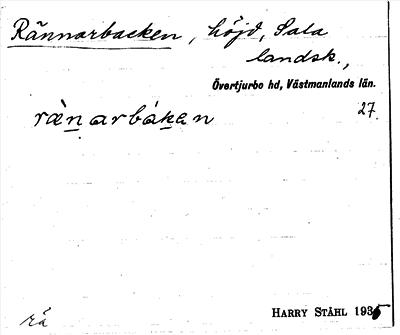 Rännarbacken, höjd, Sala
landsk.,
Övertjurbo hd, Västmanlands län.
27.
rä̀narbákan
HARRY STÅHL 1935
rå